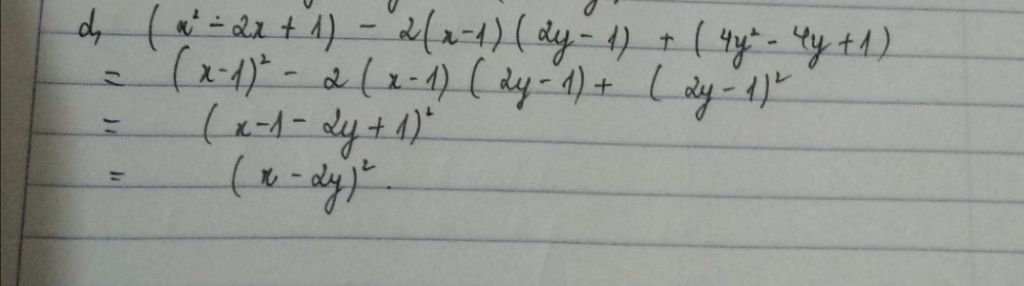 d, (x² - 2x + 1) - 2(x-1)(2y-1) + (4y² - 4y + 1)
= (x-1)² - 2(x-1)(2y-1) + (2y-1)²
= (x-1-2y+1)²
= (x-2y)².